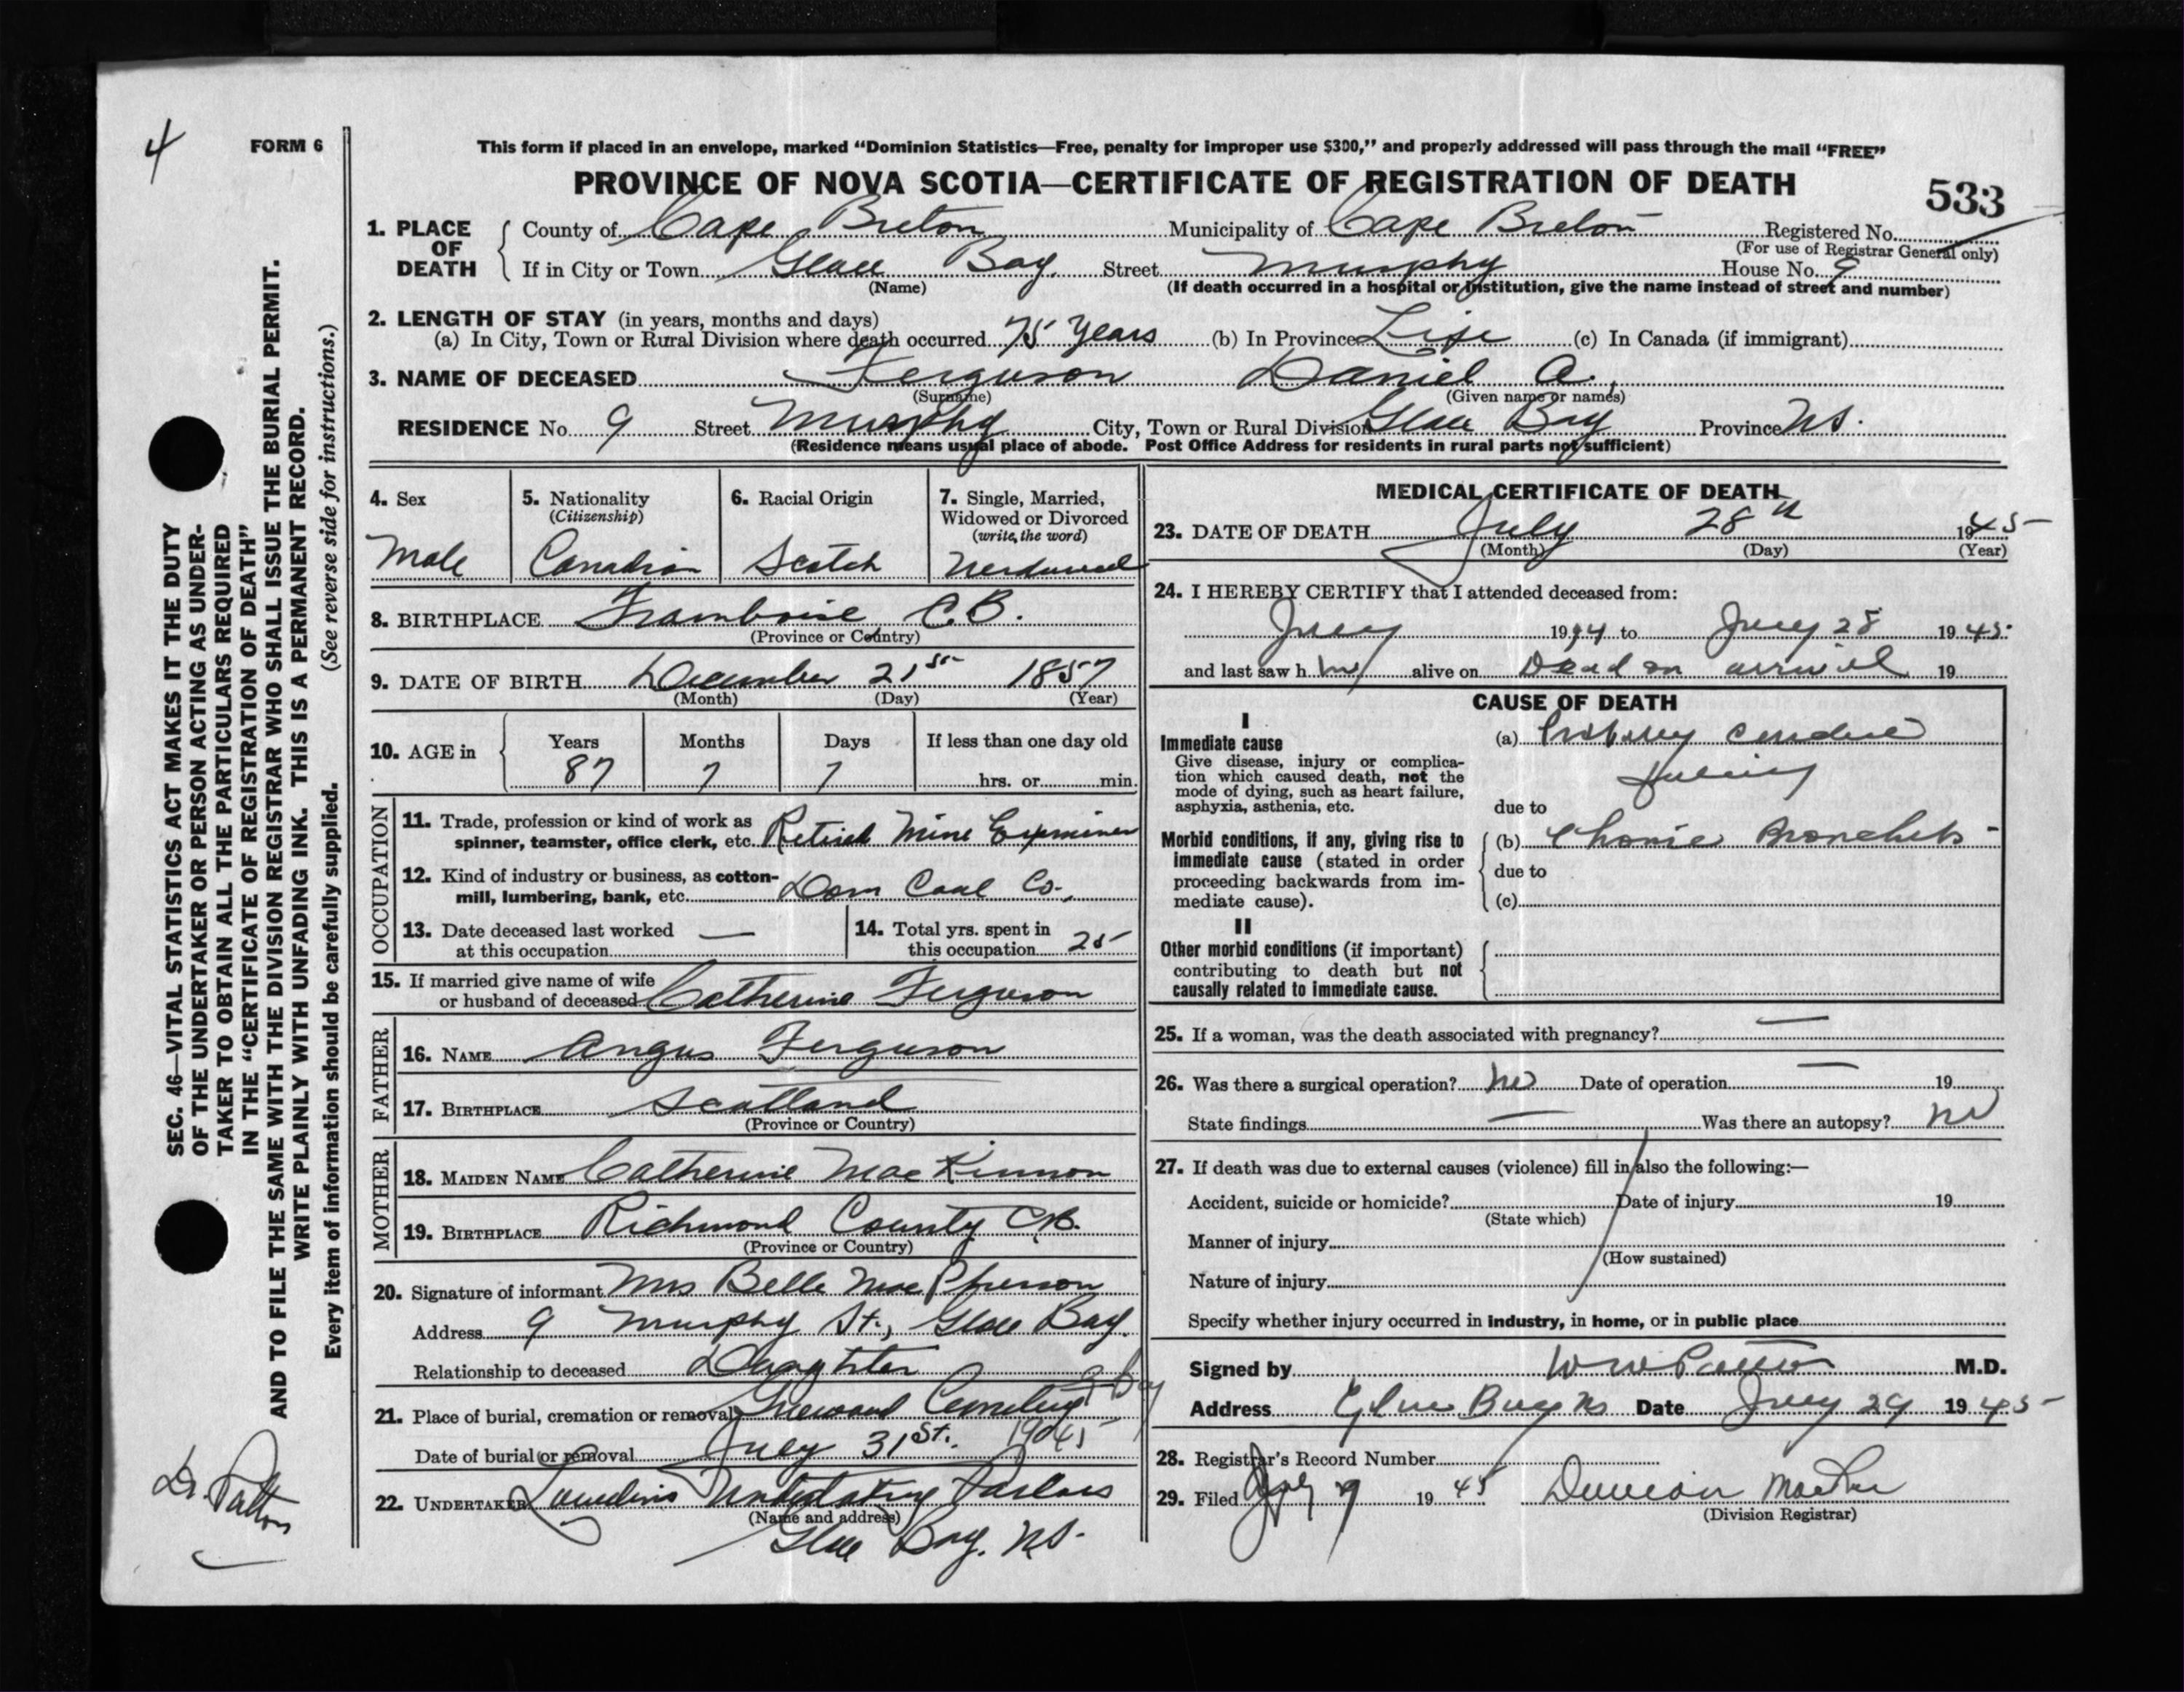 4
FORM 6
This form if placed in an envelope, marked “Dominion Statistics—Free, penalty for improper use $300,” and properly addressed will pass through the mail “FREE”
PROVINCE OF NOVA SCOTIA—CERTIFICATE OF REGISTRATION OF DEATH
533
1. PLACE OF DEATH
County of Cape Breton Municipality of Cape Breton Registered No.
(For use of Registrar General only)
If in City or Town Glace Bay. Street Murphy House No. 9
(Name) (If death occurred in a hospital or institution, give the name instead of street and number)
2. LENGTH OF STAY (in years, months and days)
(a) In City, Town or Rural Division where death occurred 75 Years (b) In Province Life (c) In Canada (if immigrant)
3. NAME OF DECEASED Ferguson Daniel A.,
(Surname) (Given name or names)
RESIDENCE No. 9 Street Murphy City, Town or Rural Division Glace Bay Province NS.
(Residence means usual place of abode. Post Office Address for residents in rural parts not sufficient)
4. Sex
Male
5. Nationality
(Citizenship)
Canadian
6. Racial Origin
Scotch
7. Single, Married,
Widowed or Divorced
(write, the word)
8. BIRTHPLACE Framboise C.B.
(Province or Country)
9. DATE OF BIRTH December 21st 1857
(Month) (Day) (Year)
10. AGE in
Years Months Days If less than one day old
87 7 7 hrs. or min.
OCCUPATION
11. Trade, profession or kind of work as
spinner, teamster, office clerk, etc. Retired Mine Examiner
12. Kind of industry or business, as cotton-
mill, lumbering, bank, etc. Dom Coal Co.
13. Date deceased last worked
at this occupation —
14. Total yrs. spent in
this occupation 25
15. If married give name of wife
or husband of deceased Catherine Ferguson
FATHER
16. NAME Angus Ferguson
17. BIRTHPLACE Scotland
(Province or Country)
MOTHER
18. MAIDEN NAME Catherine MacKinnon
19. BIRTHPLACE Richmond County C.B.
(Province or Country)
20. Signature of informant Mrs Belle MacPherson
Address 9 Murphy St., Glace Bay.
Relationship to deceased Daughter
21. Place of burial, cremation or removal Greenwood Cemetery G Bay
Date of burial or removal July 31st. 1945
22. UNDERTAKER Undertaking Parlors
(Name and address)
Glace Bay. NS.
MEDICAL CERTIFICATE OF DEATH
23. DATE OF DEATH July 28th 1945
(Month) (Day) (Year)
24. I HEREBY CERTIFY that I attended deceased from:
July 1944 to July 28 1945
and last saw h im alive on Dead on arrival 19
CAUSE OF DEATH
I
Immediate cause
Give disease, injury or complica-
tion which caused death, not the
mode of dying, such as heart failure,
asphyxia, asthenia, etc.
(a) Probably Cardiac
due to
Morbid conditions, if any, giving rise to
immediate cause (stated in order
proceeding backwards from im-
mediate cause).
(b) Chronic Bronchitis -
due to
(c)
II
Other morbid conditions (if important)
contributing to death but not
causally related to immediate cause.
25. If a woman, was the death associated with pregnancy? —
26. Was there a surgical operation? No Date of operation — 19
State findings — Was there an autopsy? No
27. If death was due to external causes (violence) fill in also the following:—
Accident, suicide or homicide? Date of injury 19
(State which)
Manner of injury
(How sustained)
Nature of injury
Specify whether injury occurred in industry, in home, or in public place
Signed by W W Patton M.D.
Address Glace Bay NS Date July 29 1945
28. Registrar's Record Number
29. Filed 1945 Duncan
(Division Registrar)
SEC. 46—VITAL STATISTICS ACT MAKES IT THE DUTY
OF THE UNDERTAKER OR PERSON ACTING AS UNDER-
TAKER TO OBTAIN ALL THE PARTICULARS REQUIRED
IN THE “CERTIFICATE OF REGISTRATION OF DEATH”
AND TO FILE THE SAME WITH THE DIVISION REGISTRAR WHO SHALL ISSUE THE BURIAL PERMIT.
WRITE PLAINLY WITH UNFADING INK. THIS IS A PERMANENT RECORD.
Every item of information should be carefully supplied. (See reverse side for instructions.)
Dr. Patton